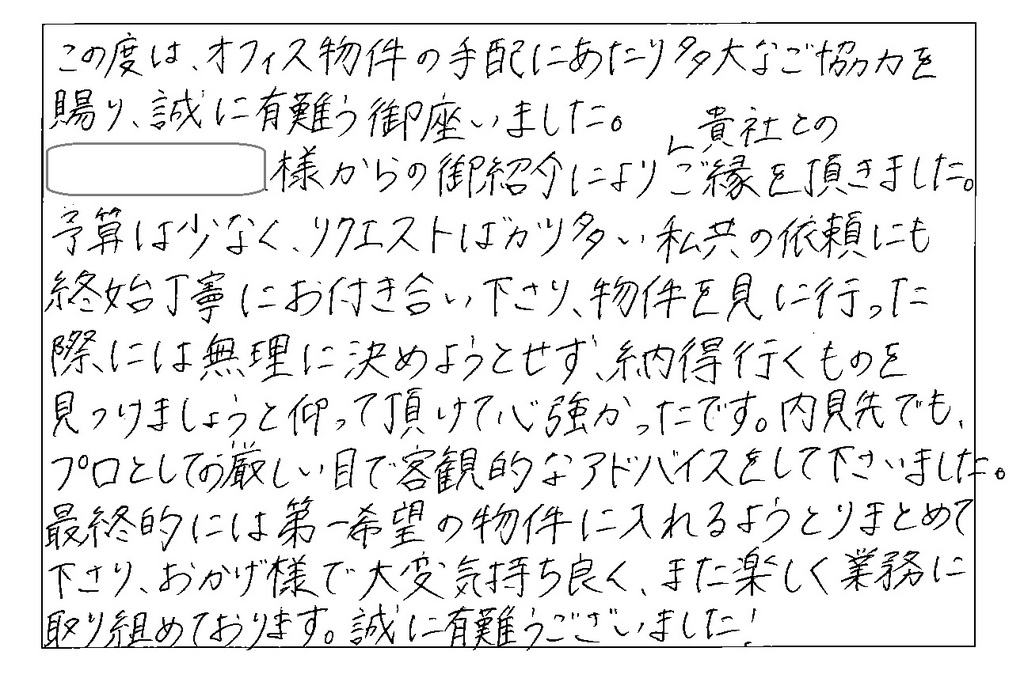 この度は、オフィス物件の手配にあたり多大なご協力を
賜り、誠に有難う御座いました。
貴社との
様からの御紹介によりご縁を頂きました。
予算は少なく、リクエストばかり多い私共の依頼にも
終始丁寧にお付き合い下さり、物件を見に行った
際には無理に決めようとせず、納得行くものを
見つけましょうと仰って頂けて心強かったです。内見先でも、
プロとしての厳しい目で客観的なアドバイスをして下さいました。
最終的には第一希望の物件に入れるようとりまとめて
下さり、おかげ様で大変気持ち良く、また楽しく業務に
取り組めております。誠に有難うございました!